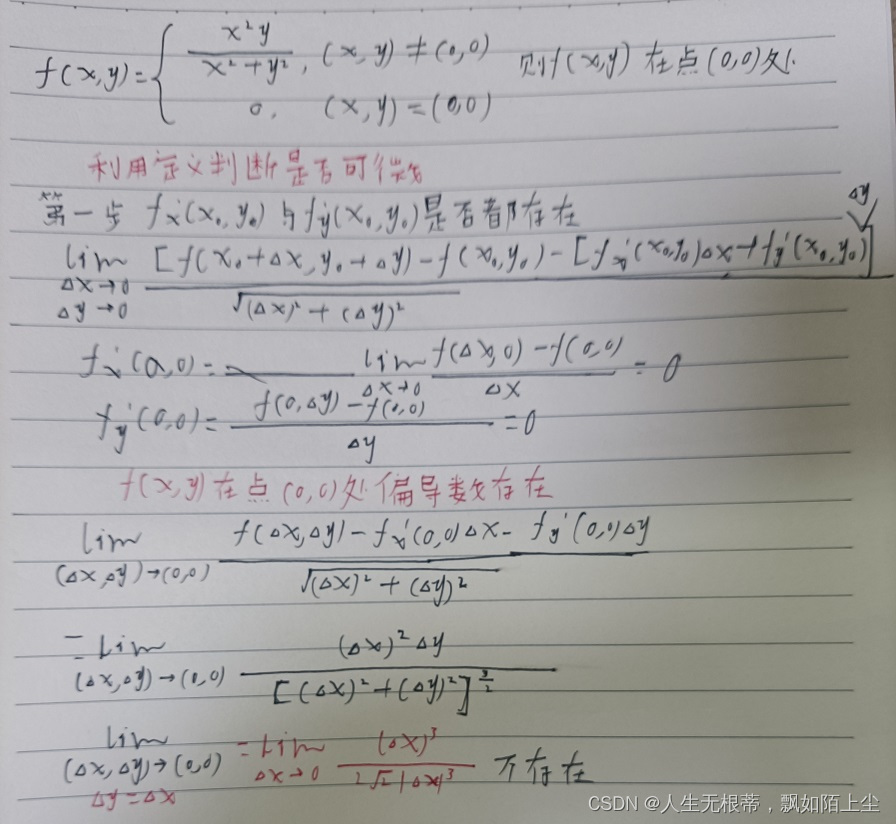 f(x,y)={ x²y/(x²+y²), (x,y)≠(0,0) 则f(x,y)在点(0,0)处
0, (x,y)=(0,0)
利用定义判断是否可微
第一步 fx'(x₀,y₀)与fy'(x₀,y₀)是否都存在
Δy
lim Δx→0 Δy→0 [f(x₀+Δx,y₀+Δy)-f(x₀,y₀)-[fx'(x₀,y₀)Δx+fy'(x₀,y₀)] / √(Δx)²+(Δy)²
fx'(0,0)= lim Δx→0 f(Δx,0)-f(0,0) / Δx = 0
fy'(0,0)= f(0,Δy)-f(0,0) / Δy =0
f(x,y)在点(0,0)处偏导数存在
lim (Δx,Δy)→(0,0) f(Δx,Δy)-fx'(0,0)Δx-fy'(0,0)Δy / √(Δx)²+(Δy)²
=lim (Δx,Δy)→(0,0) (Δx)²Δy / [(Δx)²+(Δy)²]^(3/2)
lim (Δx,Δy)→(0,0) Δy=Δx =lim Δx→0 (Δx)³ / 2√2|Δx|³ 不存在
CSDN @人生无根蒂，飘如陌上尘